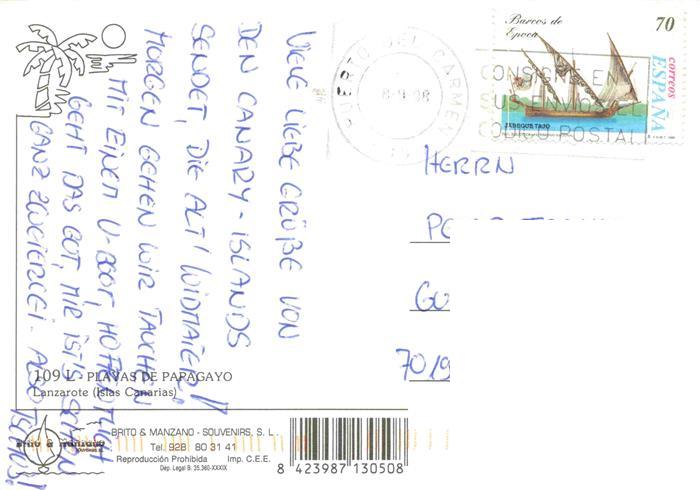 VIELE LIEBE GRÜßE VON
DEN CANARY-ISLANDS
SENDET, DIE ALT! WIDMAIER!
MORGEN GEHEN WIR TAUCHEN
MIT EINEM U-BOOT, HOFFENTLICH
GEHT DAS GUT, MIR IST'S SCHON
GANZ ZWEIERLEI. ALSO TSCHÜS!
109 L - PLAYAS DE PAPAGAYO
Lanzarote (Islas Canarias)
Brito & Manzano
BRITO & MANZANO - SOUVENIRS, S. L.
Tel. 928 80 31 41
Reproducción Prohibida Imp. C.E.E.
Dep. Legal B. 35.360-XXXIX
8 423987 130508
PUERTO DEL CARMEN
CONSIGNE EN
SUS ENVIOS EL
CODIGO POSTAL
Barcos de
Epoca
70
correos
ESPAÑA
JABEQUE TAJO
HERRN